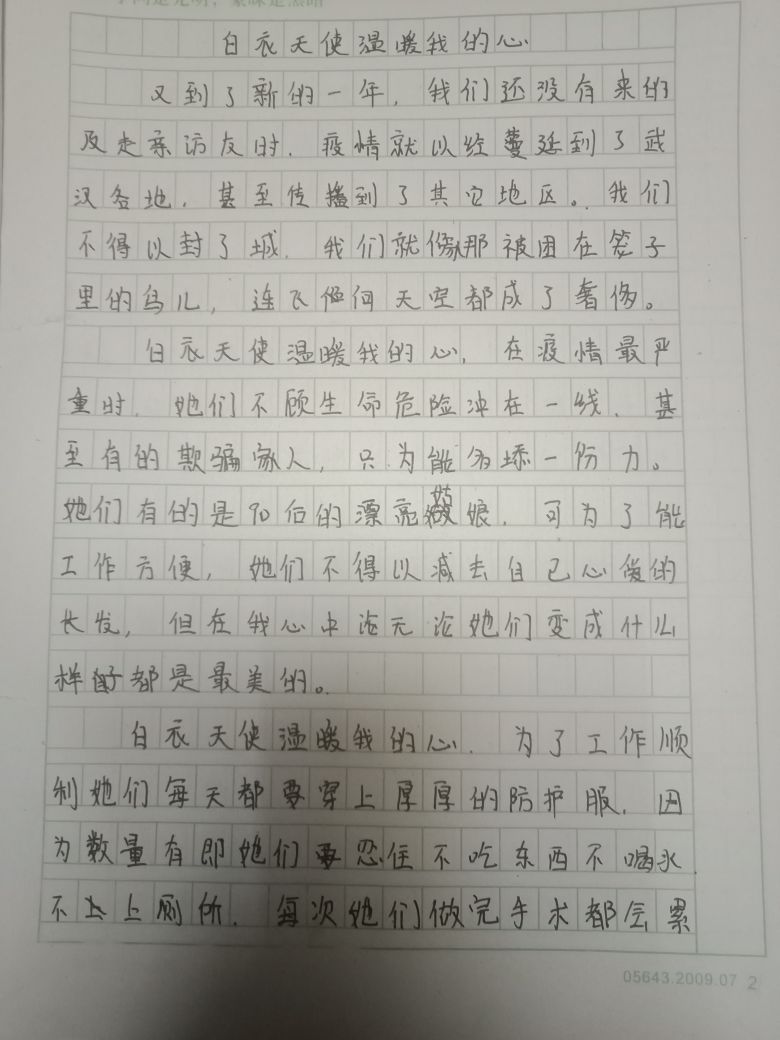 白衣天使温暖我的心
又到了新的一年，我们还没有来的
及走亲访友时，疫情就以经蔓延到了武
汉各地，甚至传播到了其它地区。我们
不得以封了城，我们就像那被困在笼子
里的鸟儿，连飞向天空都成了奢侈。
白衣天使温暖我的心，在疫情最严
重时，她们不顾生命危险冲在一线，甚
至有的欺骗家人，只为能多添一份力。
她们有的是90后的漂亮姑娘，可为了能
工作方便，她们不得以减去自己心爱的
长发，但在我心中论无论她们变成什么
样子都是最美的。
白衣天使温暖我的心，为了工作顺
利她们每天都要穿上厚厚的防护服，因
为数量有即她们要忍住不吃东西不喝水
不上厕所，每次她们做完手术都会累
05643.2009.07 2